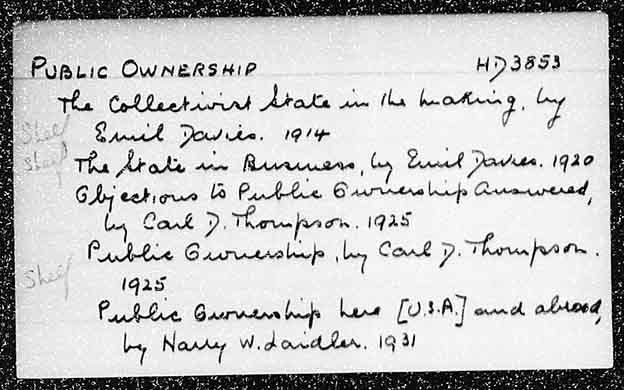 PUBLIC OWNERSHIP HD3853
The Collectivist State in the making, by
Shelf Emil Davies. 1914
Shelf The State in Business, by Emil Davies. 1920
Objections to Public Ownership Answered,
by Carl D. Thompson. 1925
Public Ownership, by Carl D. Thompson.
Shelf 1925
Public Ownership here [U.S.A.] and abroad,
by Harry W. Laidler. 1931